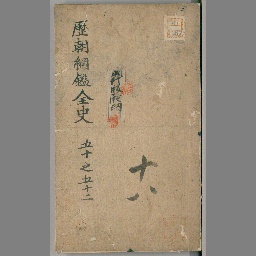 歷朝綱鑑全史
五十之五十二
十八